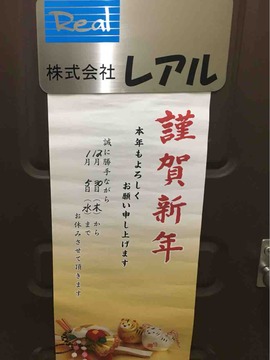 Real
株式会社 レアル
謹賀新年
本年もよろしく
お願い申し上げます
誠に勝手ながら
12月30(木)から
1月5(水)まで
お休みさせて頂きます